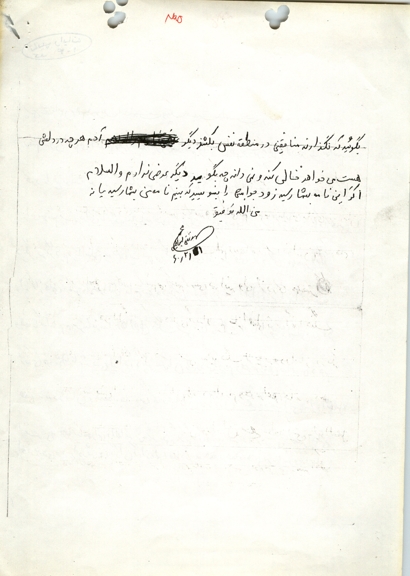 بگوئید که نگذارند منافقینی در منطقه نفس بکشند دیگر آدم هرچه در دلش
هست می‌خواهد خالی کند و نمی‌داند چه بگوید دیگر عرضی ندارم والسلام
اگر این نامه بشما رسید زود جوابم را بنویسید که ببینم نامه من بشما رسید یا نه
من الله توفیق